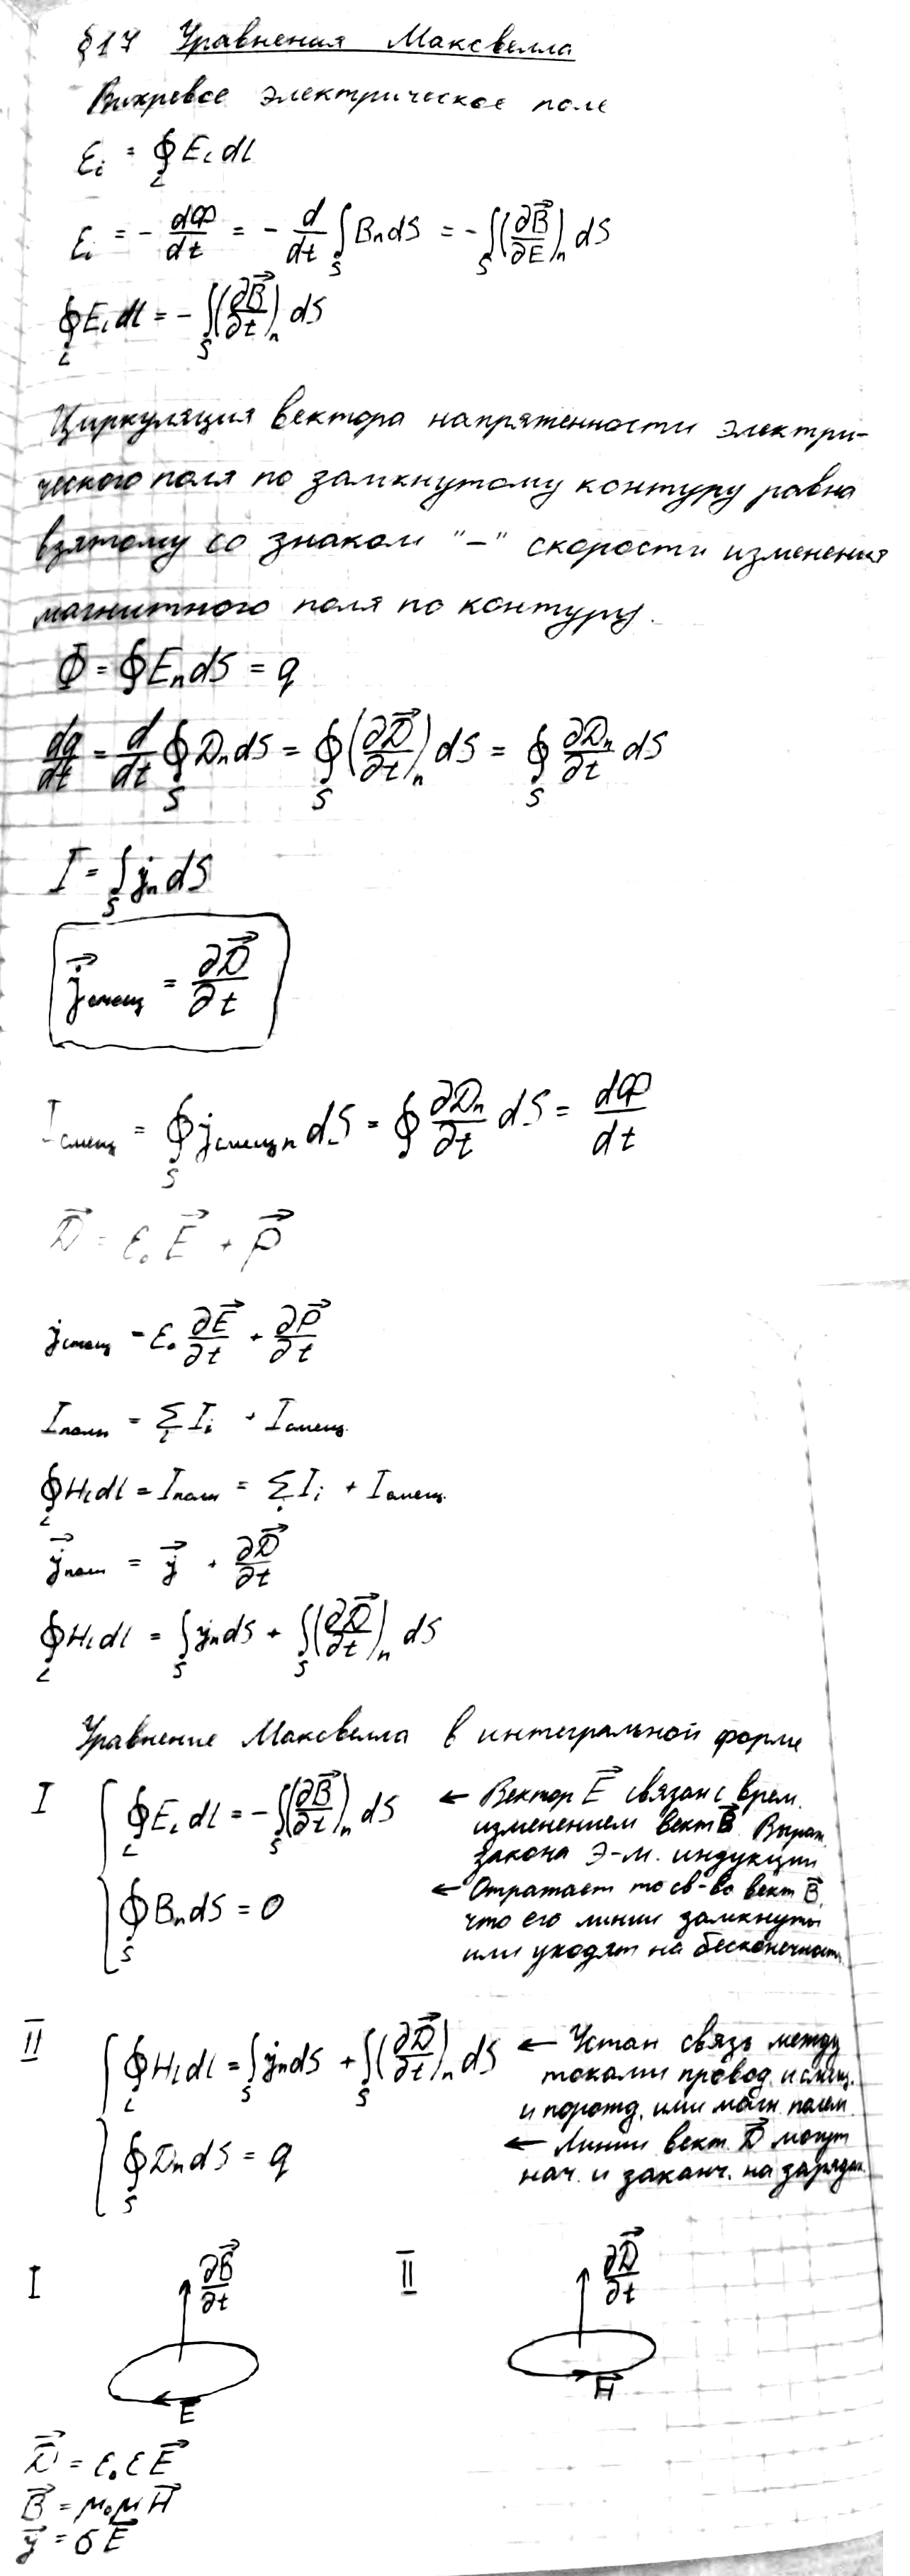 §17 Уравнения Максвелла
Вихревое электрическое поле
ℰᵢ = ∮_L E_l dl
ℰᵢ = - dΦ/dt = - d/dt ∫_S B_n dS = - ∫_S (∂B⃗/∂E)_n dS
∮_L E_l dl = - ∫_S (∂B⃗/∂t)_n dS
Циркуляция вектора напряженности электри-
ческого поля по замкнутому контуру равна
взятому со знаком "–" скорости изменения
магнитного поля по контуру.
Φ = ∮ E_n dS = q
dq/dt = d/dt ∮_S D_n dS = ∮_S (∂D⃗/∂t)_n dS = ∮_S ∂D_n/∂t dS
I = ∫_S j_n dS
j⃗_смещ = ∂D⃗/∂t
I_смещ = ∮_S j_смещ n dS = ∮ ∂D_n/∂t dS = dΦ/dt
D⃗ = ε₀ E⃗ + P⃗
j_смещ = ε₀ ∂E⃗/∂t + ∂P⃗/∂t
I_полн = ∑_i I_i + I_смещ.
∮_L H_l dl = I_полн = ∑_i I_i + I_смещ.
j⃗_полн = j⃗ + ∂D⃗/∂t
∮_L H_l dl = ∫_S j_n dS + ∫_S (∂D⃗/∂t)_n dS
Уравнение Максвелла в интегральной форме
I ∮_L E_l dl = - ∫_S (∂B⃗/∂t)_n dS ← Вектор E⃗ связан с врем.
изменением вект B⃗. Выраж.
закона Э-м. индукции
∮_S B_n dS = 0 ← Отражает то св-во вект B⃗,
что его линии замкнуты
или уходят на бесконечность.
II ∮_L H_l dl = ∫_S j_n dS + ∫_S (∂D⃗/∂t)_n dS ← Устан связь между
токами провод. и смещ.
и порожд. ими магн. полем.
∮_S D_n dS = q ← Линии вект. D⃗ могут
нач. и заканч. на зарядах.
I ∂B⃗/∂t II ∂D⃗/∂t
E⃗ H⃗
D⃗ = ε₀ ε E⃗
B⃗ = μ₀ μ H⃗
j⃗ = σ E⃗